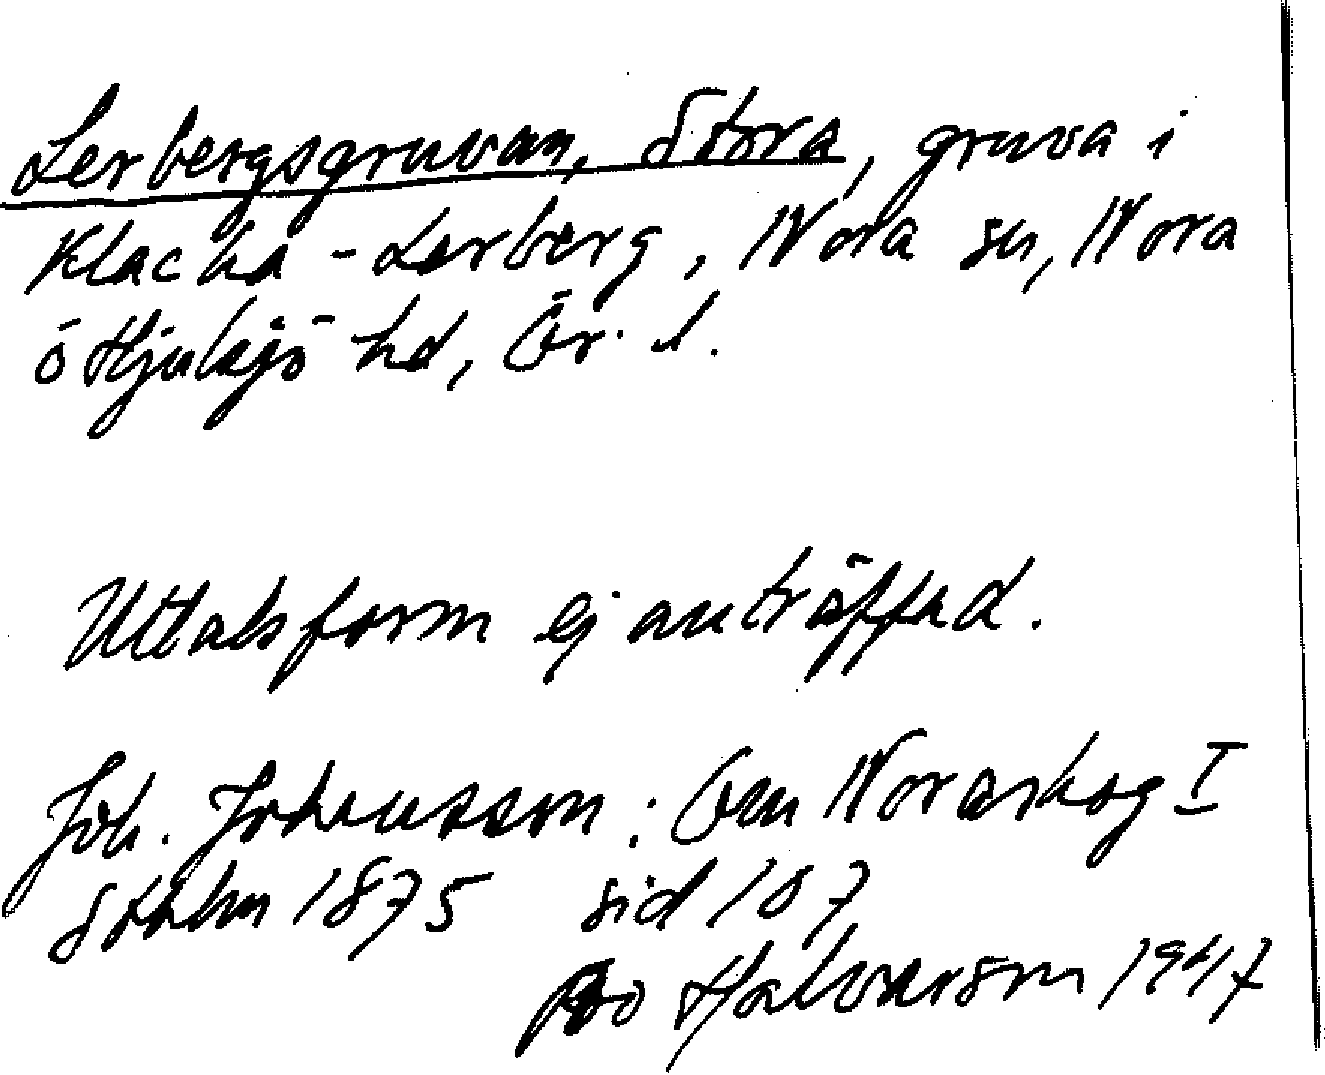 Lerbergsgruvan, Stora, gruva i
Klacka-Lerberg, Nora sn, Nora
ö Hjulsjö hd, Ör. l.
Uttalsform ej anträffad.
Joh. Johansson: Om Noraskog I
Sthlm 1875 sid 107
Bo Halvarson 1947